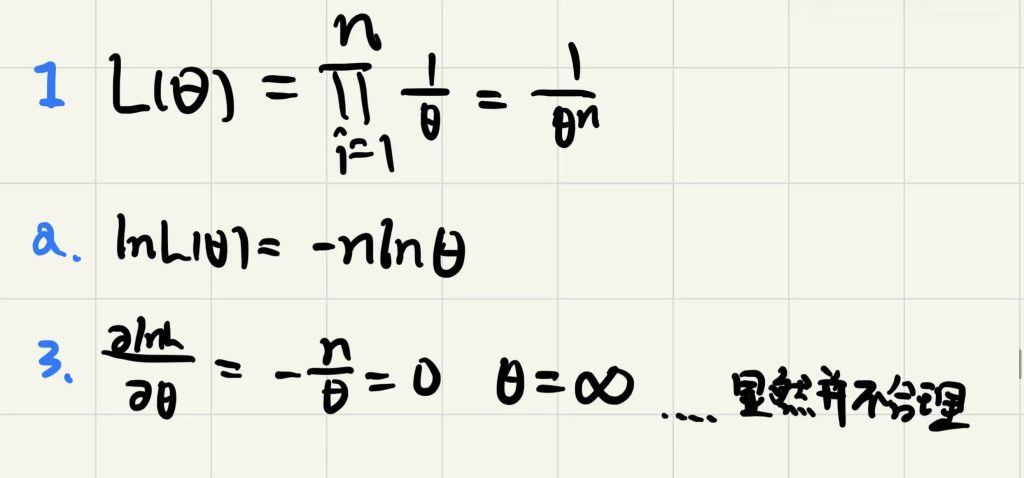 1 L(θ) = ∏_{i=1}^{n} 1/θ = 1/θ^n
2. lnL(θ) = -n ln θ
3. ∂lnL/∂θ = -n/θ = 0 θ = ∞ ..... 显然并不合理